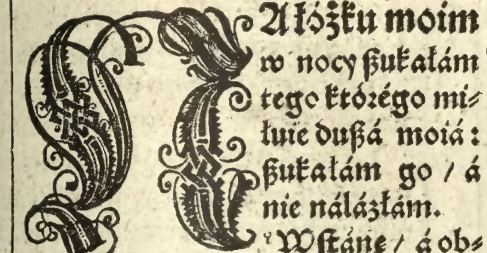 NA łóżku moim
w nocy ßukáłám
tego którégo mi⸗
łuie dußá moiá :
ßukáłám go / á
nie nálázłám.
Wſtánę / á ob⸗